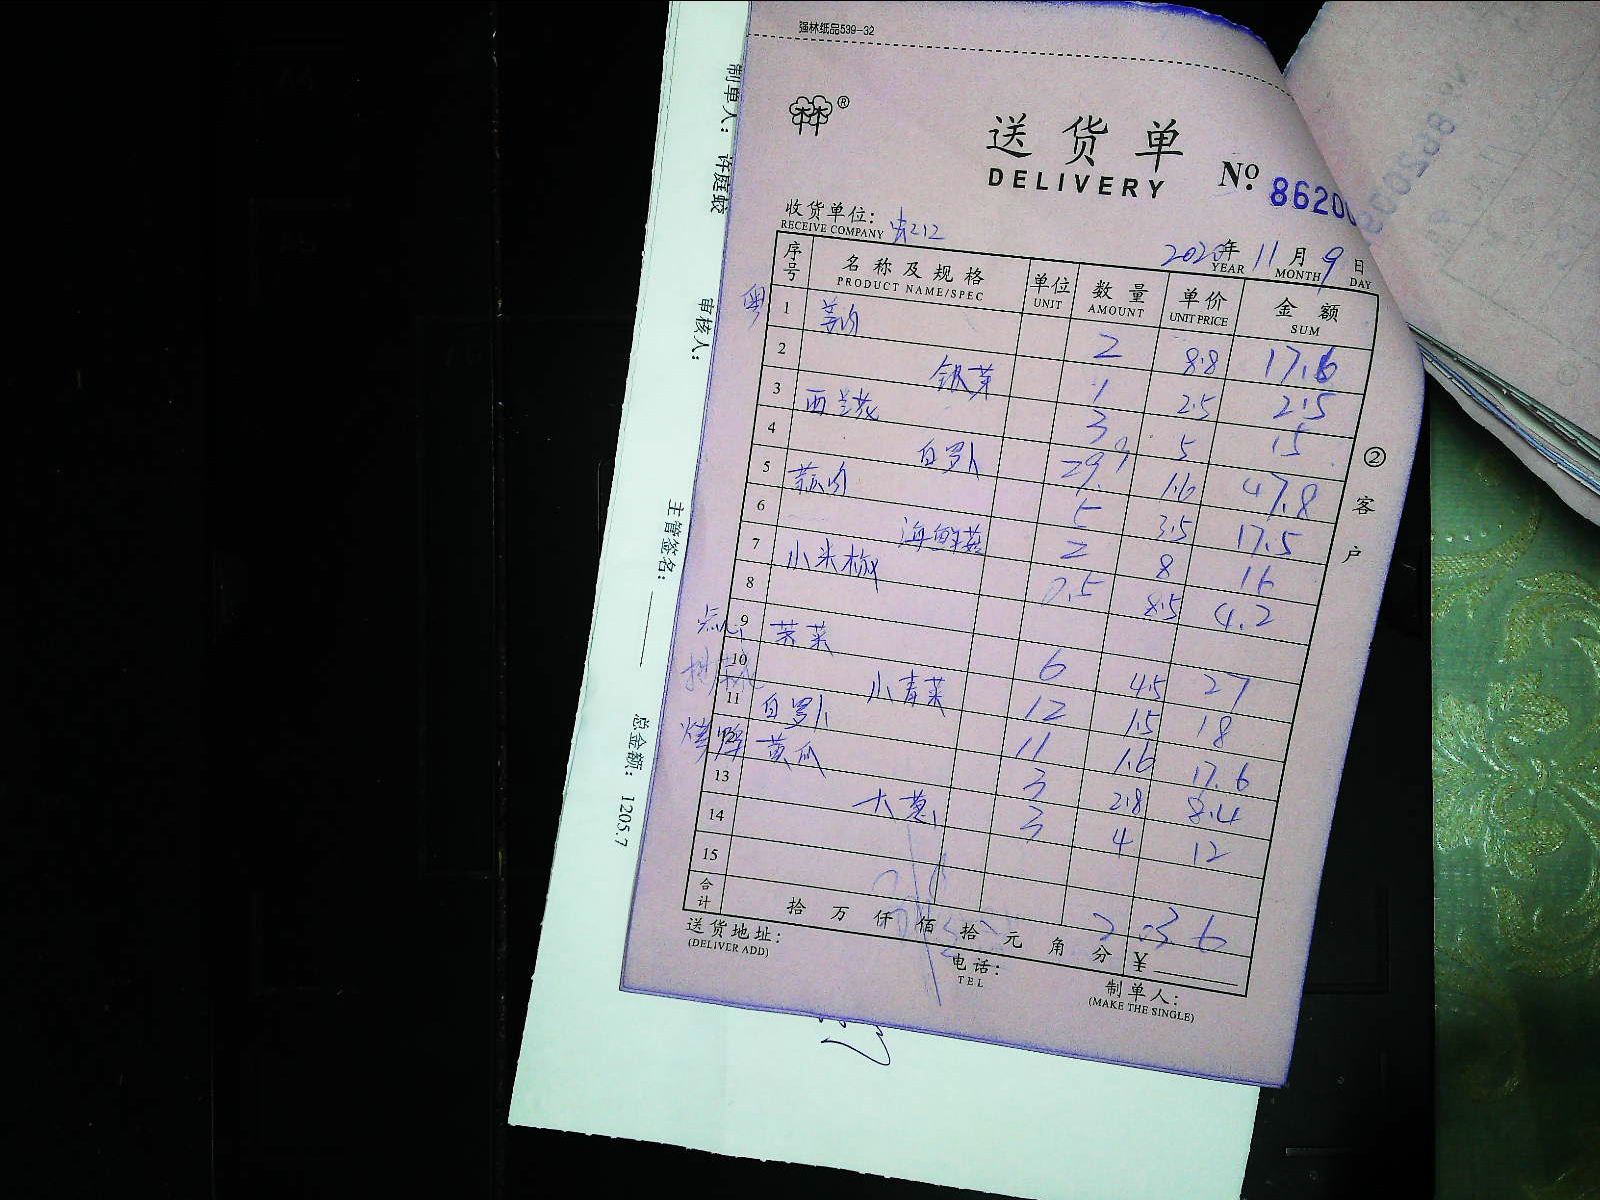 强林纸品539-32
送货单
DELIVERY
No. 8620
收货单位:
RECEIVE COMPANY
2020年 11月 9日
YEAR MONTH DAY
序号 名称及规格 单位 数量 单价 金额
PRODUCT NAME/SPEC UNIT AMOUNT UNIT PRICE SUM
粤 1 姜肉 2 8.8 17.6
2 银芽 1 2.5 2.5
3 西兰花 3 5 15
4 白罗卜 29.9 1.6 47.8
5 5 3.5 17.5
6 海鲜菇 2 8 16
7 小米椒 0.5 8.5 4.2
8
点心 9 6 4.5 27
10 小青菜 12 1.5 18
11 白罗卜 11 1.6 17.6
黄瓜 3 2.8 8.4
13 大葱 3 4 12
14
15
合计 拾 万 仟 佰 拾 元 角 分 ¥ 203.6
送货地址:
(DELIVER ADD)
电话:
TEL
制单人:
(MAKE THE SINGLE)
② 客户
制单人: 许庭蛟
审核人:
主管签名:
总金额: 1205.7